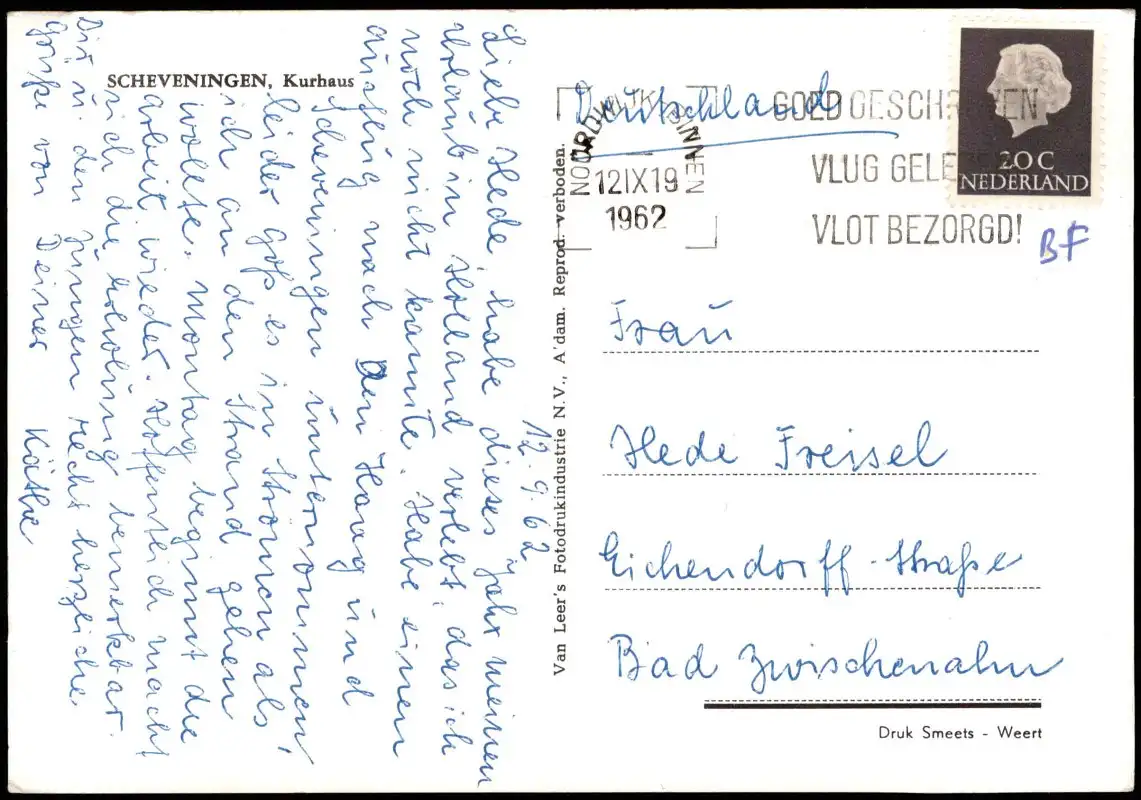 SCHEVENINGEN, Kurhaus
12.9.62
Liebe Hede, habe dieses Jahr meinen
Urlaub in Holland verlebt, das ich
noch nicht kannte. Habe einen
Ausflug nach Den Haag und
Scheveningen unternommen,
leider goß es in Strömen als
ich an den Strand gehen
wollte. Montag beginnt die
Arbeit wieder. Hoffentlich macht
sich die Erholung bemerkbar.
Dir u. den Jungen recht herzliche
Grüße von Deiner Käthe
Van Leer's Fotodrukindustrie N.V., A'dam. Reprod. verboden.
Deutschland
NOORDWIJK BINNEN
12 IX 19
1962
GOED GESCHREVEN
VLUG GELE
VLOT BEZORGD!
20 C
NEDERLAND
BF
Frau
Hede Freisel
Eichendorff-Straße
Bad Zwischenahn
Druk Smeets - Weert